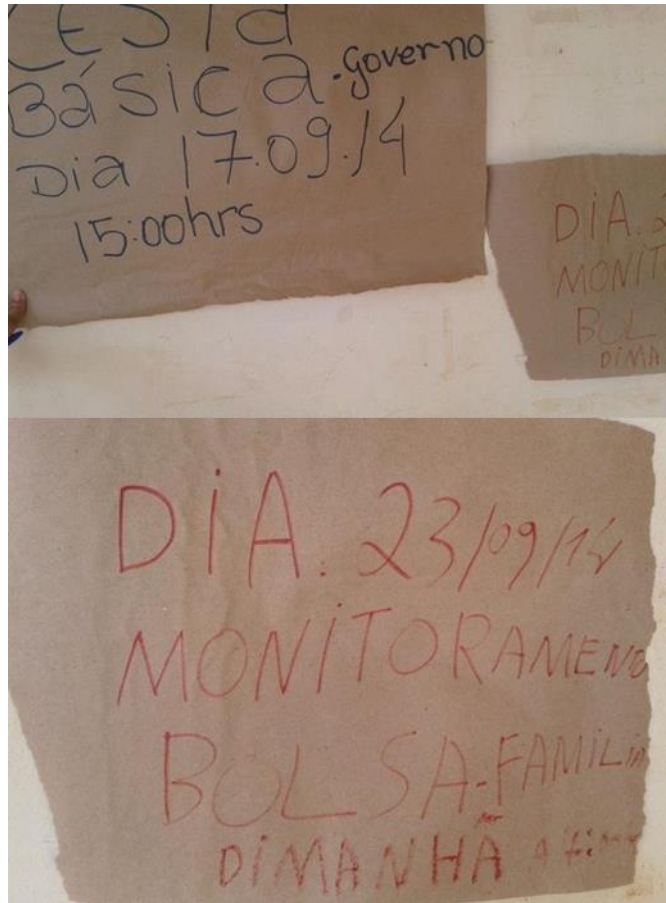 CESTA
Básica - Governo
Dia 17.09.14
15:00hrs
DIA. 
MONIT
BOL
DIMA
DIA. 23/09/14
MONITORAMENO
BOLSA-FAMILIA
DIMANHÃ A